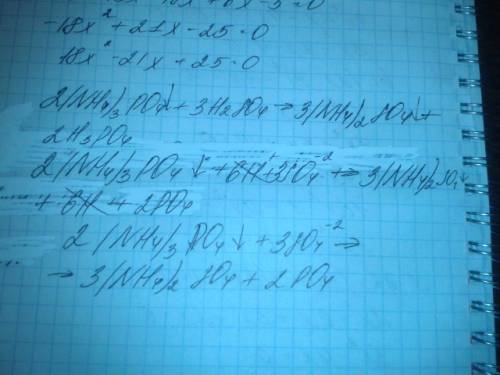 -18x² + 21x - 25 = 0
18x² - 21x + 25 = 0
2(NH₄)₃PO₄↓ + 3H₂SO₄ → 3(NH₄)₂SO₄↓ +
2H₃PO₄
2(NH₄)₃PO₄↓ + 6H⁺ + 3SO₄⁻² → 3(NH₄)₂SO₄↓
+ 6H + 2PO₄
2(NH₄)₃PO₄↓ + 3SO₄⁻² →
→ 3(NH₄)₂SO₄ + 2PO₄